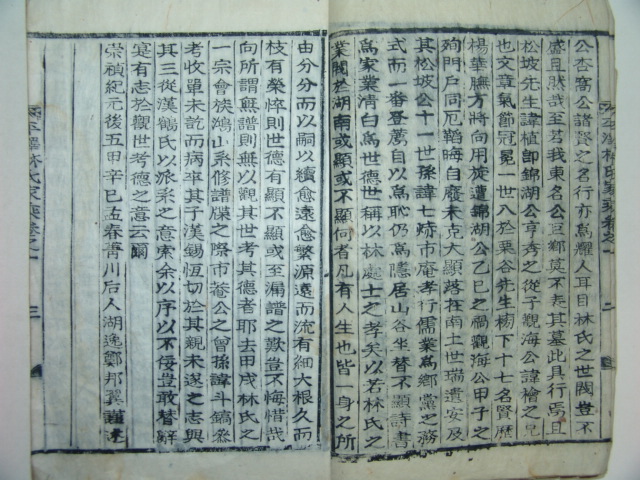 公杏窩公諱賢之名行亦爲耀人耳目林氏之世閥豈不
盛且然哉至若我東名公巨卿莫不表其墓此具行焉且
松坡先生諱植卽錦湖公亨秀之從子觀海公諱檜之兄
也文章氣節冠冕一世入於栗谷先生榜下十七名賢歷
楊華膴方將向用旋遭錦湖公乙巳之禍觀海公甲子之
殉門戶同厄韜晦自廢未克大顯落在南土世瑞遺安及
其松坡公十一世孫諱七 市庵孝行儒業爲鄕黨之務
式而一番登薦自以爲恥仍爲隱居山谷坐替不顯詩書
爲家業淸白爲世德世稱以林處士之孝矣以若林氏之
業閥於湖南或顯或不顯何者凡有人生也皆一身之所
由分分而以嗣以續愈遠愈繁源遠而流有細大根久而
枝有榮悴則世德有顯不顯或至漏譜之歎豈不悔惜哉
向所謂無譜則無以觀其世考其德者耶去甲戌林氏之
一宗會族鴻山系修譜牒之際市菴公之曾孫諱斗鎬叅
考收單未訖而病卒其子漢錫恆切於其親未遂之志與
其三從漢鶴氏以派系之意索余以序以不侫豈敢替辭
寔有志於觀世考德之意云爾
崇禎紀元後五甲辛巳孟春菁川后人湖逸鄭邦翼謹述
平澤林氏家乘卷之一
二
三